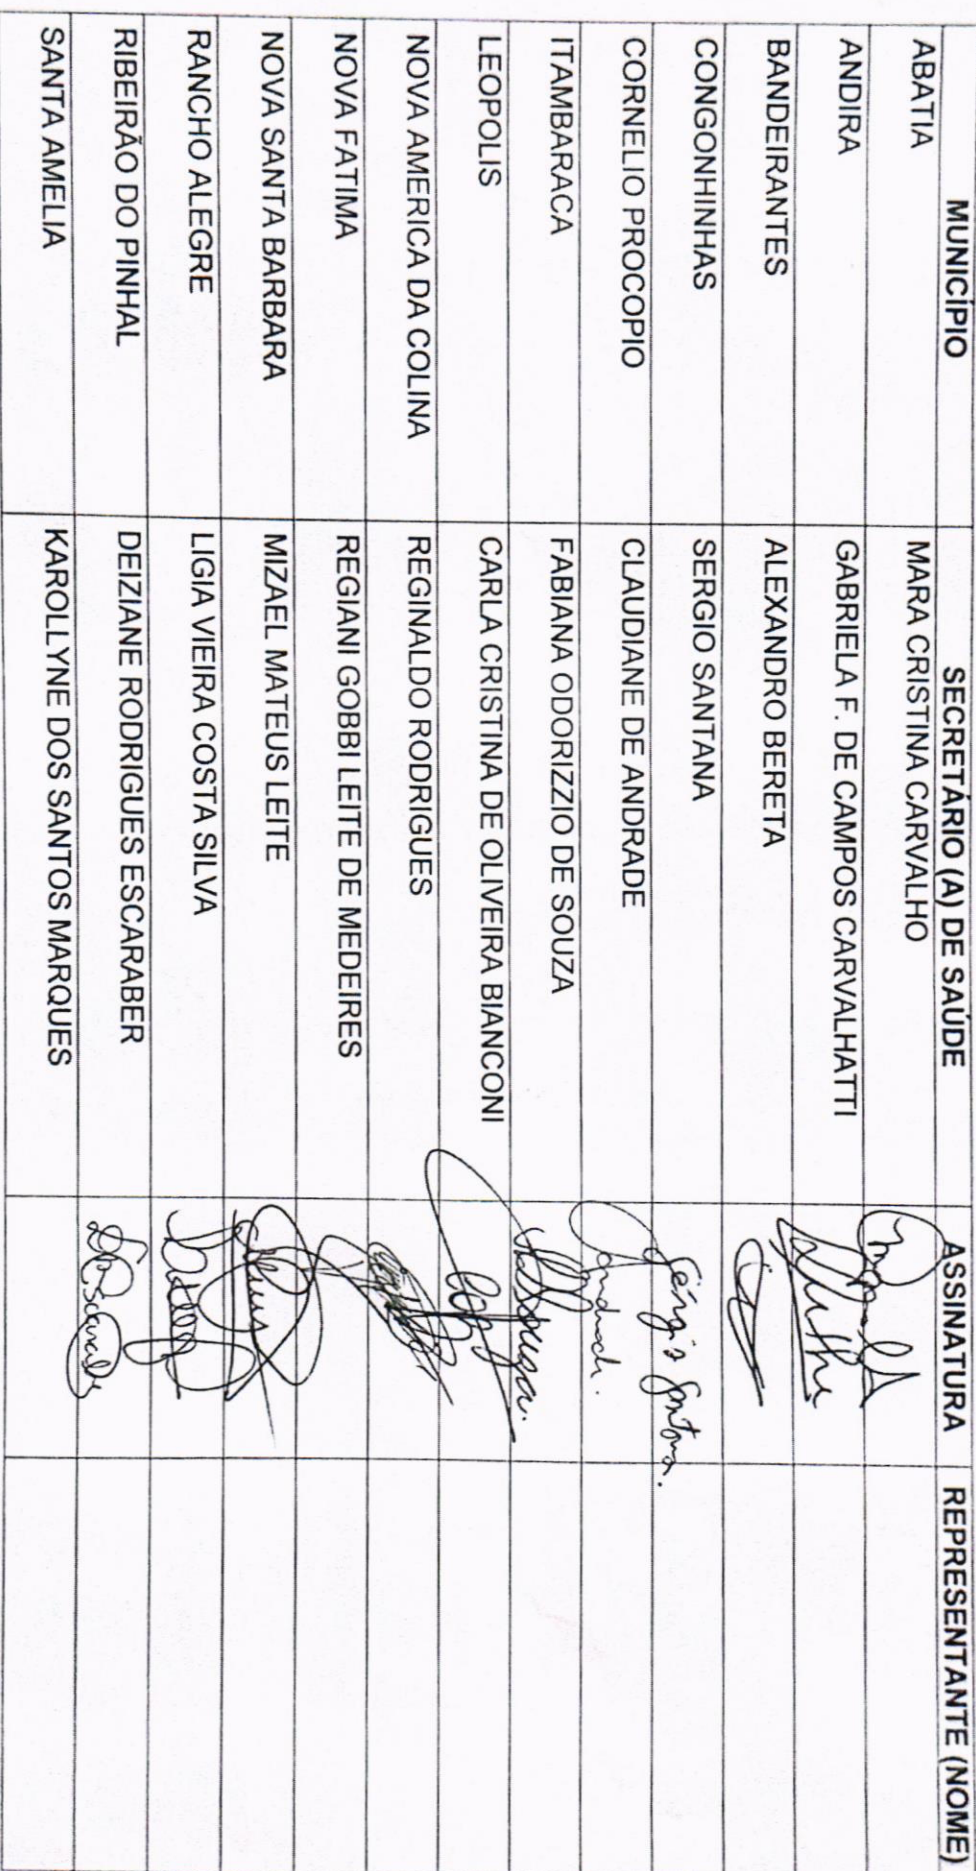 MUNICÍPIO SECRETÁRIO (A) DE SAÚDE ASSINATURA REPRESENTANTE (NOME)
ABATIA MARA CRISTINA CARVALHO
ANDIRA GABRIELA F. DE CAMPOS CARVALHATTI
BANDEIRANTES ALEXANDRO BERETA
CONGONHINHAS SERGIO SANTANA Sérgio Santana.
CORNELIO PROCOPIO CLAUDIANE DE ANDRADE
ITAMBARACA FABIANA ODORIZZIO DE SOUZA
LEOPOLIS CARLA CRISTINA DE OLIVEIRA BIANCONI
NOVA AMERICA DA COLINA REGINALDO RODRIGUES
NOVA FATIMA REGIANI GOBBI LEITE DE MEDEIRES
NOVA SANTA BARBARA MIZAEL MATEUS LEITE
RANCHO ALEGRE LIGIA VIEIRA COSTA SILVA
RIBEIRÃO DO PINHAL DEIZIANE RODRIGUES ESCARABER
SANTA AMELIA KAROLLYNE DOS SANTOS MARQUES